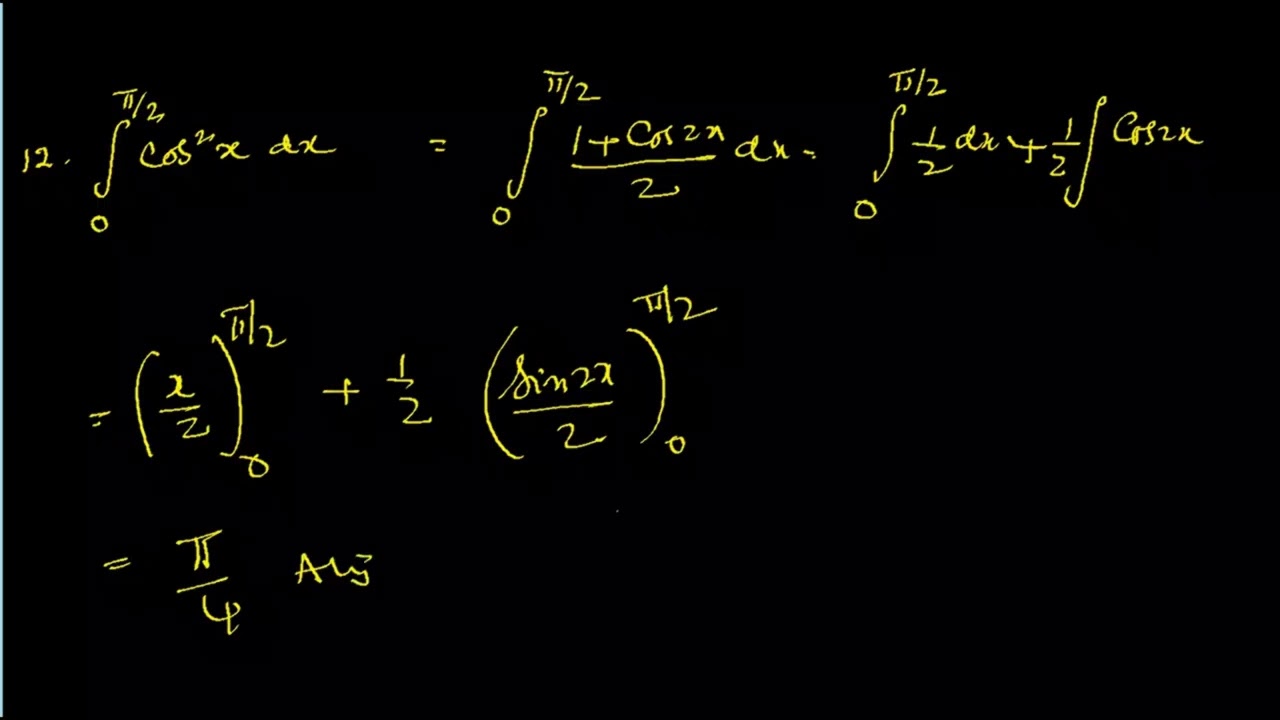 12. ∫₀^{π/2} cos²x dx = ∫₀^{π/2} (1 + cos2x)/2 dx = ∫₀^{π/2} 1/2 dx + 1/2 ∫ cos2x
= (x/2)₀^{π/2} + 1/2 (sin2x/2)₀^{π/2}
= π/4 Ans